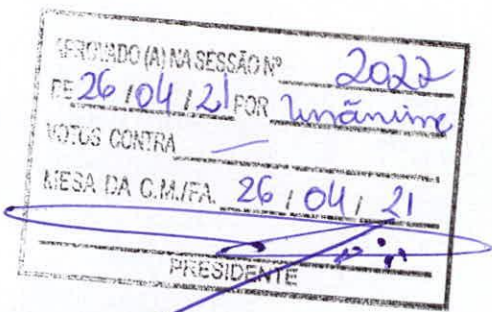 APROVADO (A) NA SESSÃO Nº 2022
DE 26 / 04 / 21 POR unânime
VOTOS CONTRA —
MESA DA C.M./FA. 26 / 04 / 21
PRESIDENTE